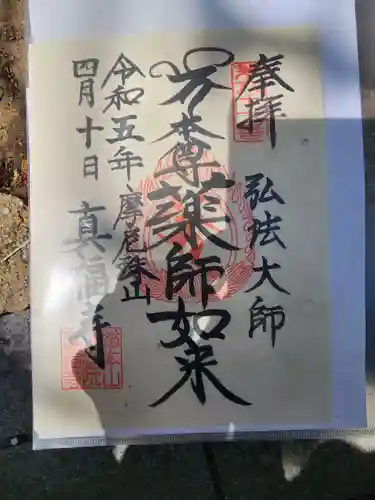 奉拝
弘法大師
本尊薬師如来
令和五年
四月十日
摩尼珠山
真福寺